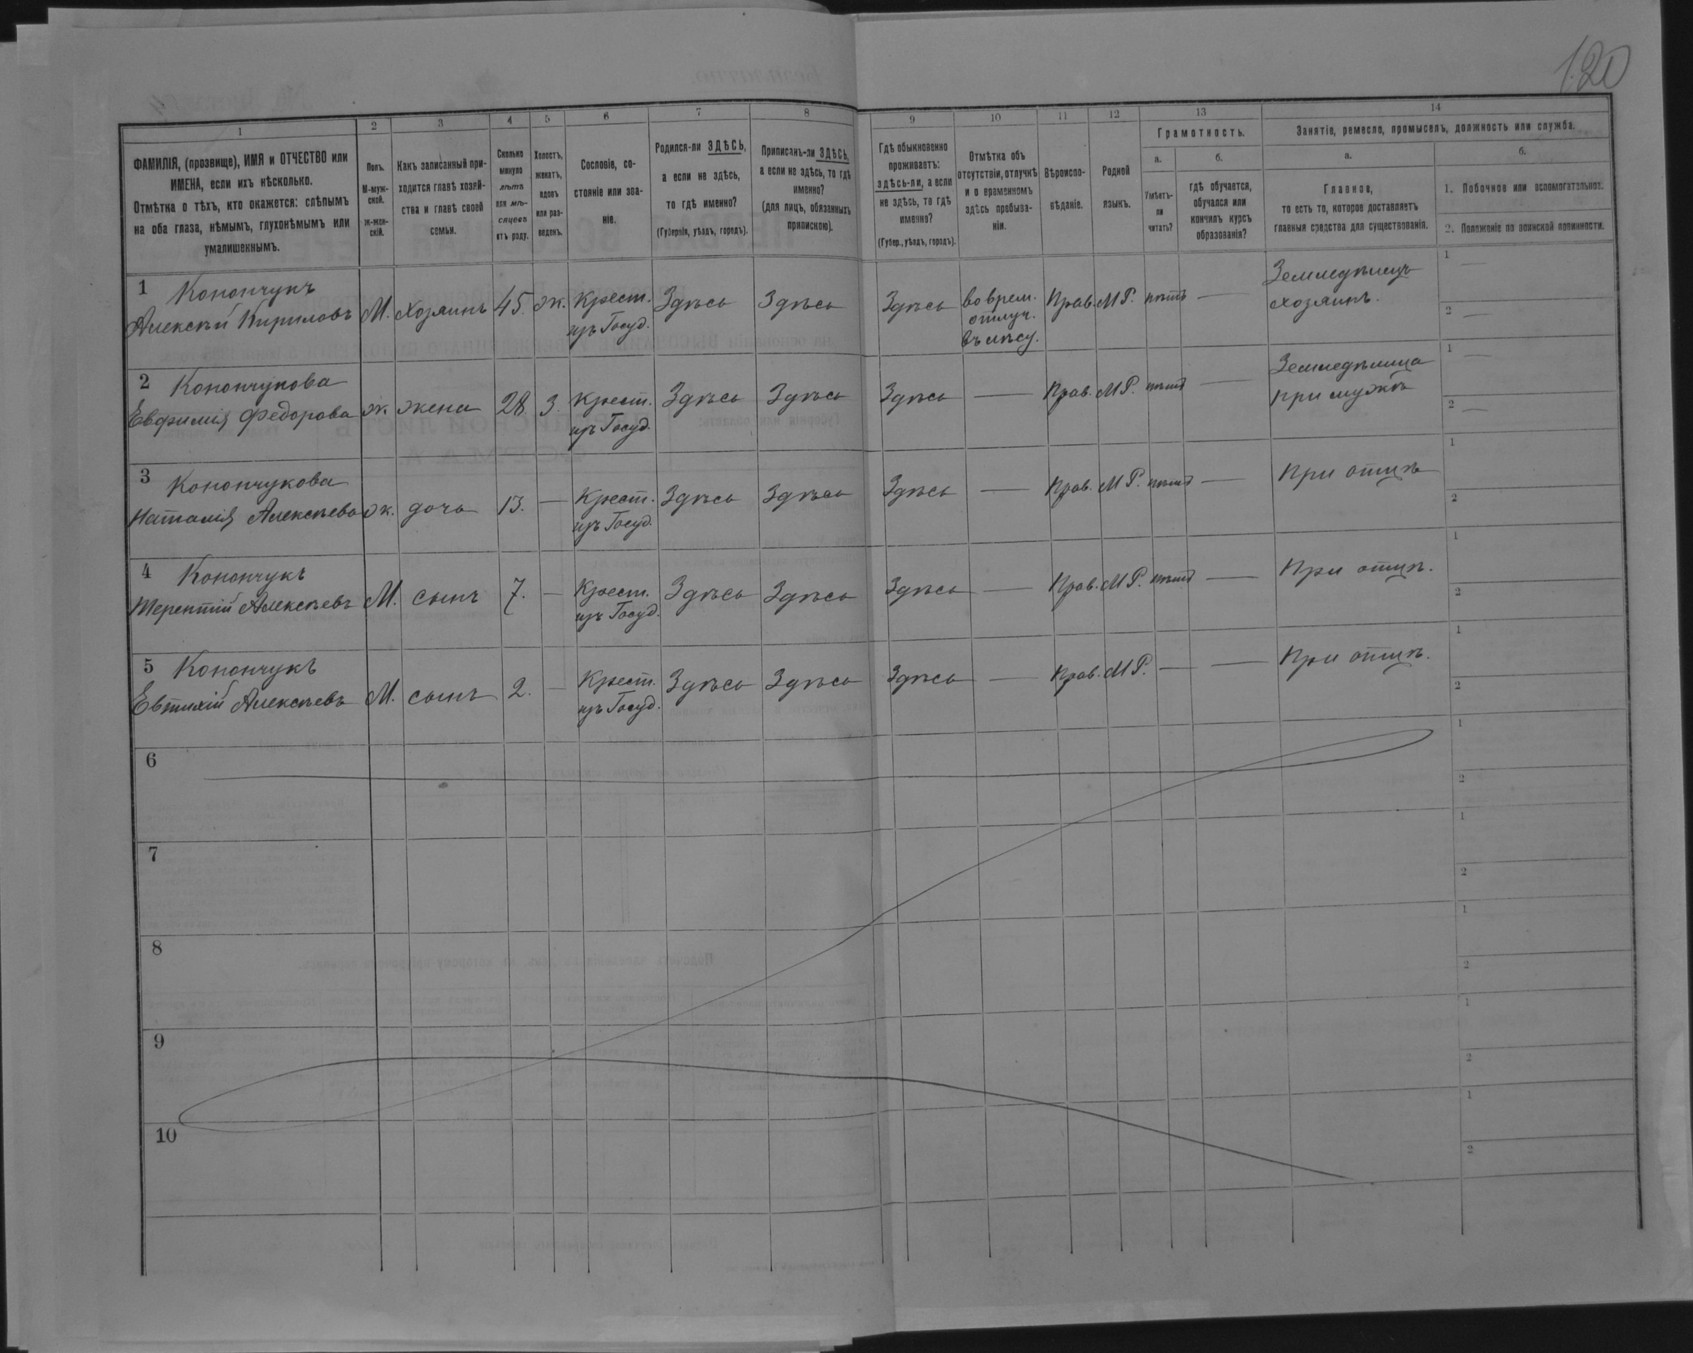 120
1
2
3
4
5
6
7
8
9
10
11
12
13
14
ФАМИЛІЯ, (прозвище), ИМЯ и ОТЧЕСТВО или
ИМЕНА, если ихъ нѣсколько.
Отмѣтка о тѣхъ, кто окажется: слѣпымъ
на оба глаза, нѣмымъ, глухонѣмымъ или
умалишеннымъ.
Полъ.
М-муж-
ской.
Ж-жен-
скій.
Какъ записанный при-
ходится главѣ хозяй-
ства и главѣ своей
семьи.
Сколько
минуло
лѣтъ
или мѣ-
сяцевъ
отъ роду.
Холостъ,
женатъ,
вдовъ
или раз-
веденъ.
Сословіе, со-
стояніе или зва-
ніе.
Родился-ли ЗДѢСЬ,
а если не здѣсь,
то гдѣ именно?
(Губернія, уѣздъ, городъ).
Приписанъ-ли ЗДѢСЬ,
а если не здѣсь, то гдѣ
именно?
(для лицъ, обязанныхъ
припискою).
Гдѣ обыкновенно
проживаетъ:
здѣсь-ли, а если
не здѣсь, то гдѣ
именно?
(Губер., уѣздъ, городъ).
Отмѣтка объ
отсутствіи, отлучкѣ
и о временномъ
здѣсь пребыва-
ніи.
Вѣроиспо-
вѣданіе.
Родной
языкъ.
Грамотность.
а.
Умѣетъ-
ли
читать?
б.
гдѣ обучается,
обучался или
кончилъ курсъ
образованія?
Занятіе, ремесло, промыселъ, должность или служба.
а.
Главное,
то есть то, которое доставляетъ
главныя средства для существованія.
б.
1. Побочное или вспомогательное.
2. Положеніе по воинской повинности.
1 Конончукъ
Алексѣй Кириловъ М. хозяинъ 45. ж. Крест. изъ Госуд. Здѣсь Здѣсь Здѣсь во врем. отлуч. въ лѣсу. Прав. М Р. нѣтъ — Земледѣлецъ хозяинъ. 1 — 2 —
2 Конончукова
Евфимія Федорова ж. жена 28 З. Крест. изъ Госуд. Здѣсь Здѣсь Здѣсь — Прав. М Р. нѣтъ — Земледѣлица при мужѣ 1 — 2 —
3 Конончукова
Наталія Алексѣева ж. дочь 13. — Крест. изъ Госуд. Здѣсь Здѣсь Здѣсь — Прав. М Р. нѣтъ — При отцѣ 1 2
4 Конончукъ
Терентій Алексѣевъ М. сынъ 7. — Крест. изъ Госуд. Здѣсь Здѣсь Здѣсь — Прав. М Р. нѣтъ — При отцѣ. 1 2
5 Конончукъ
Евтихій Алексѣевъ М. сынъ 2. — Крест. изъ Госуд. Здѣсь Здѣсь Здѣсь — Прав. М Р. — — При отцѣ. 1 2
6 1 2
7 1 2
8 1 2
9 1 2
10 1 2